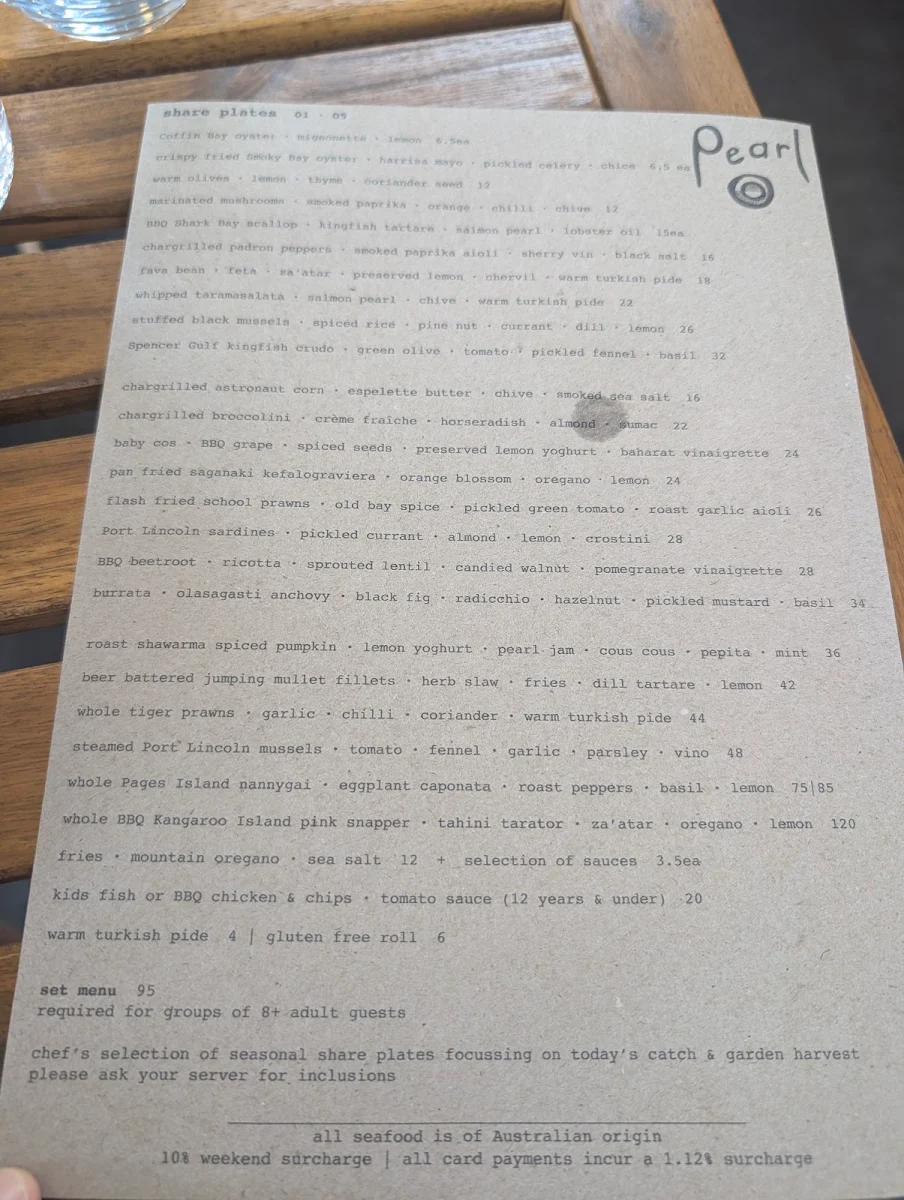 share plates 01 · 09
Pearl
Coffin Bay oyster · mignonette · lemon 6.5ea
crispy fried Smoky Bay oyster · harrisa mayo · pickled celery · chive 6.5 ea
warm olives · lemon · thyme · coriander seed 12
marinated mushrooms · smoked paprika · orange · chilli · chive 12
BBQ Shark Bay scallop · kingfish tartare · salmon pearl · lobster oil 15ea
chargrilled padron peppers · smoked paprika aioli · sherry vin · black salt 16
fava bean · feta · za'atar · preserved lemon · chervil · warm turkish pide 18
whipped taramasalata · salmon pearl · chive · warm turkish pide 22
stuffed black mussels · spiced rice · pine nut · currant · dill · lemon 26
Spencer Gulf kingfish crudo · green olive · tomato · pickled fennel · basil 32
chargrilled astronaut corn · espelette butter · chive · smoked sea salt 16
chargrilled broccolini · crème fraîche · horseradish · almond · sumac 22
baby cos · BBQ grape · spiced seeds · preserved lemon yoghurt · baharat vinaigrette 24
pan fried saganaki kefalograviera · orange blossom · oregano · lemon 24
flash fried school prawns · old bay spice · pickled green tomato · roast garlic aioli 26
Port Lincoln sardines · pickled currant · almond · lemon · crostini 28
BBQ beetroot · ricotta · sprouted lentil · candied walnut · pomegranate vinaigrette 28
burrata · olasagasti anchovy · black fig · radicchio · hazelnut · pickled mustard · basil 34
roast shawarma spiced pumpkin · lemon yoghurt · pearl jam · cous cous · pepita · mint 36
beer battered jumping mullet fillets · herb slaw · fries · dill tartare · lemon 42
whole tiger prawns · garlic · chilli · coriander · warm turkish pide 44
steamed Port Lincoln mussels · tomato · fennel · garlic · parsley · vino 48
whole Pages Island nannygai · eggplant caponata · roast peppers · basil · lemon 75|85
whole BBQ Kangaroo Island pink snapper · tahini tarator · za'atar · oregano · lemon 120
fries · mountain oregano · sea salt 12 + selection of sauces 3.5ea
kids fish or BBQ chicken & chips · tomato sauce (12 years & under) 20
warm turkish pide 4 | gluten free roll 6
set menu 95
required for groups of 8+ adult guests
chef's selection of seasonal share plates focussing on today's catch & garden harvest
please ask your server for inclusions
all seafood is of Australian origin
10% weekend surcharge | all card payments incur a 1.12% surcharge